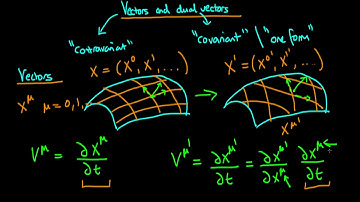 Vectors and dual vectors
"Cotravariant" "Covariant" \ "one form"
Vectors X = (X⁰, X¹, ....) X' = (X⁰', X¹', ....)
X^μ μ = 0,1,
X^μ'
V^μ = ∂X^μ / ∂t V^μ' = ∂X^μ' / ∂t = ∂X^μ' / ∂X^μ ∂X^μ / ∂t